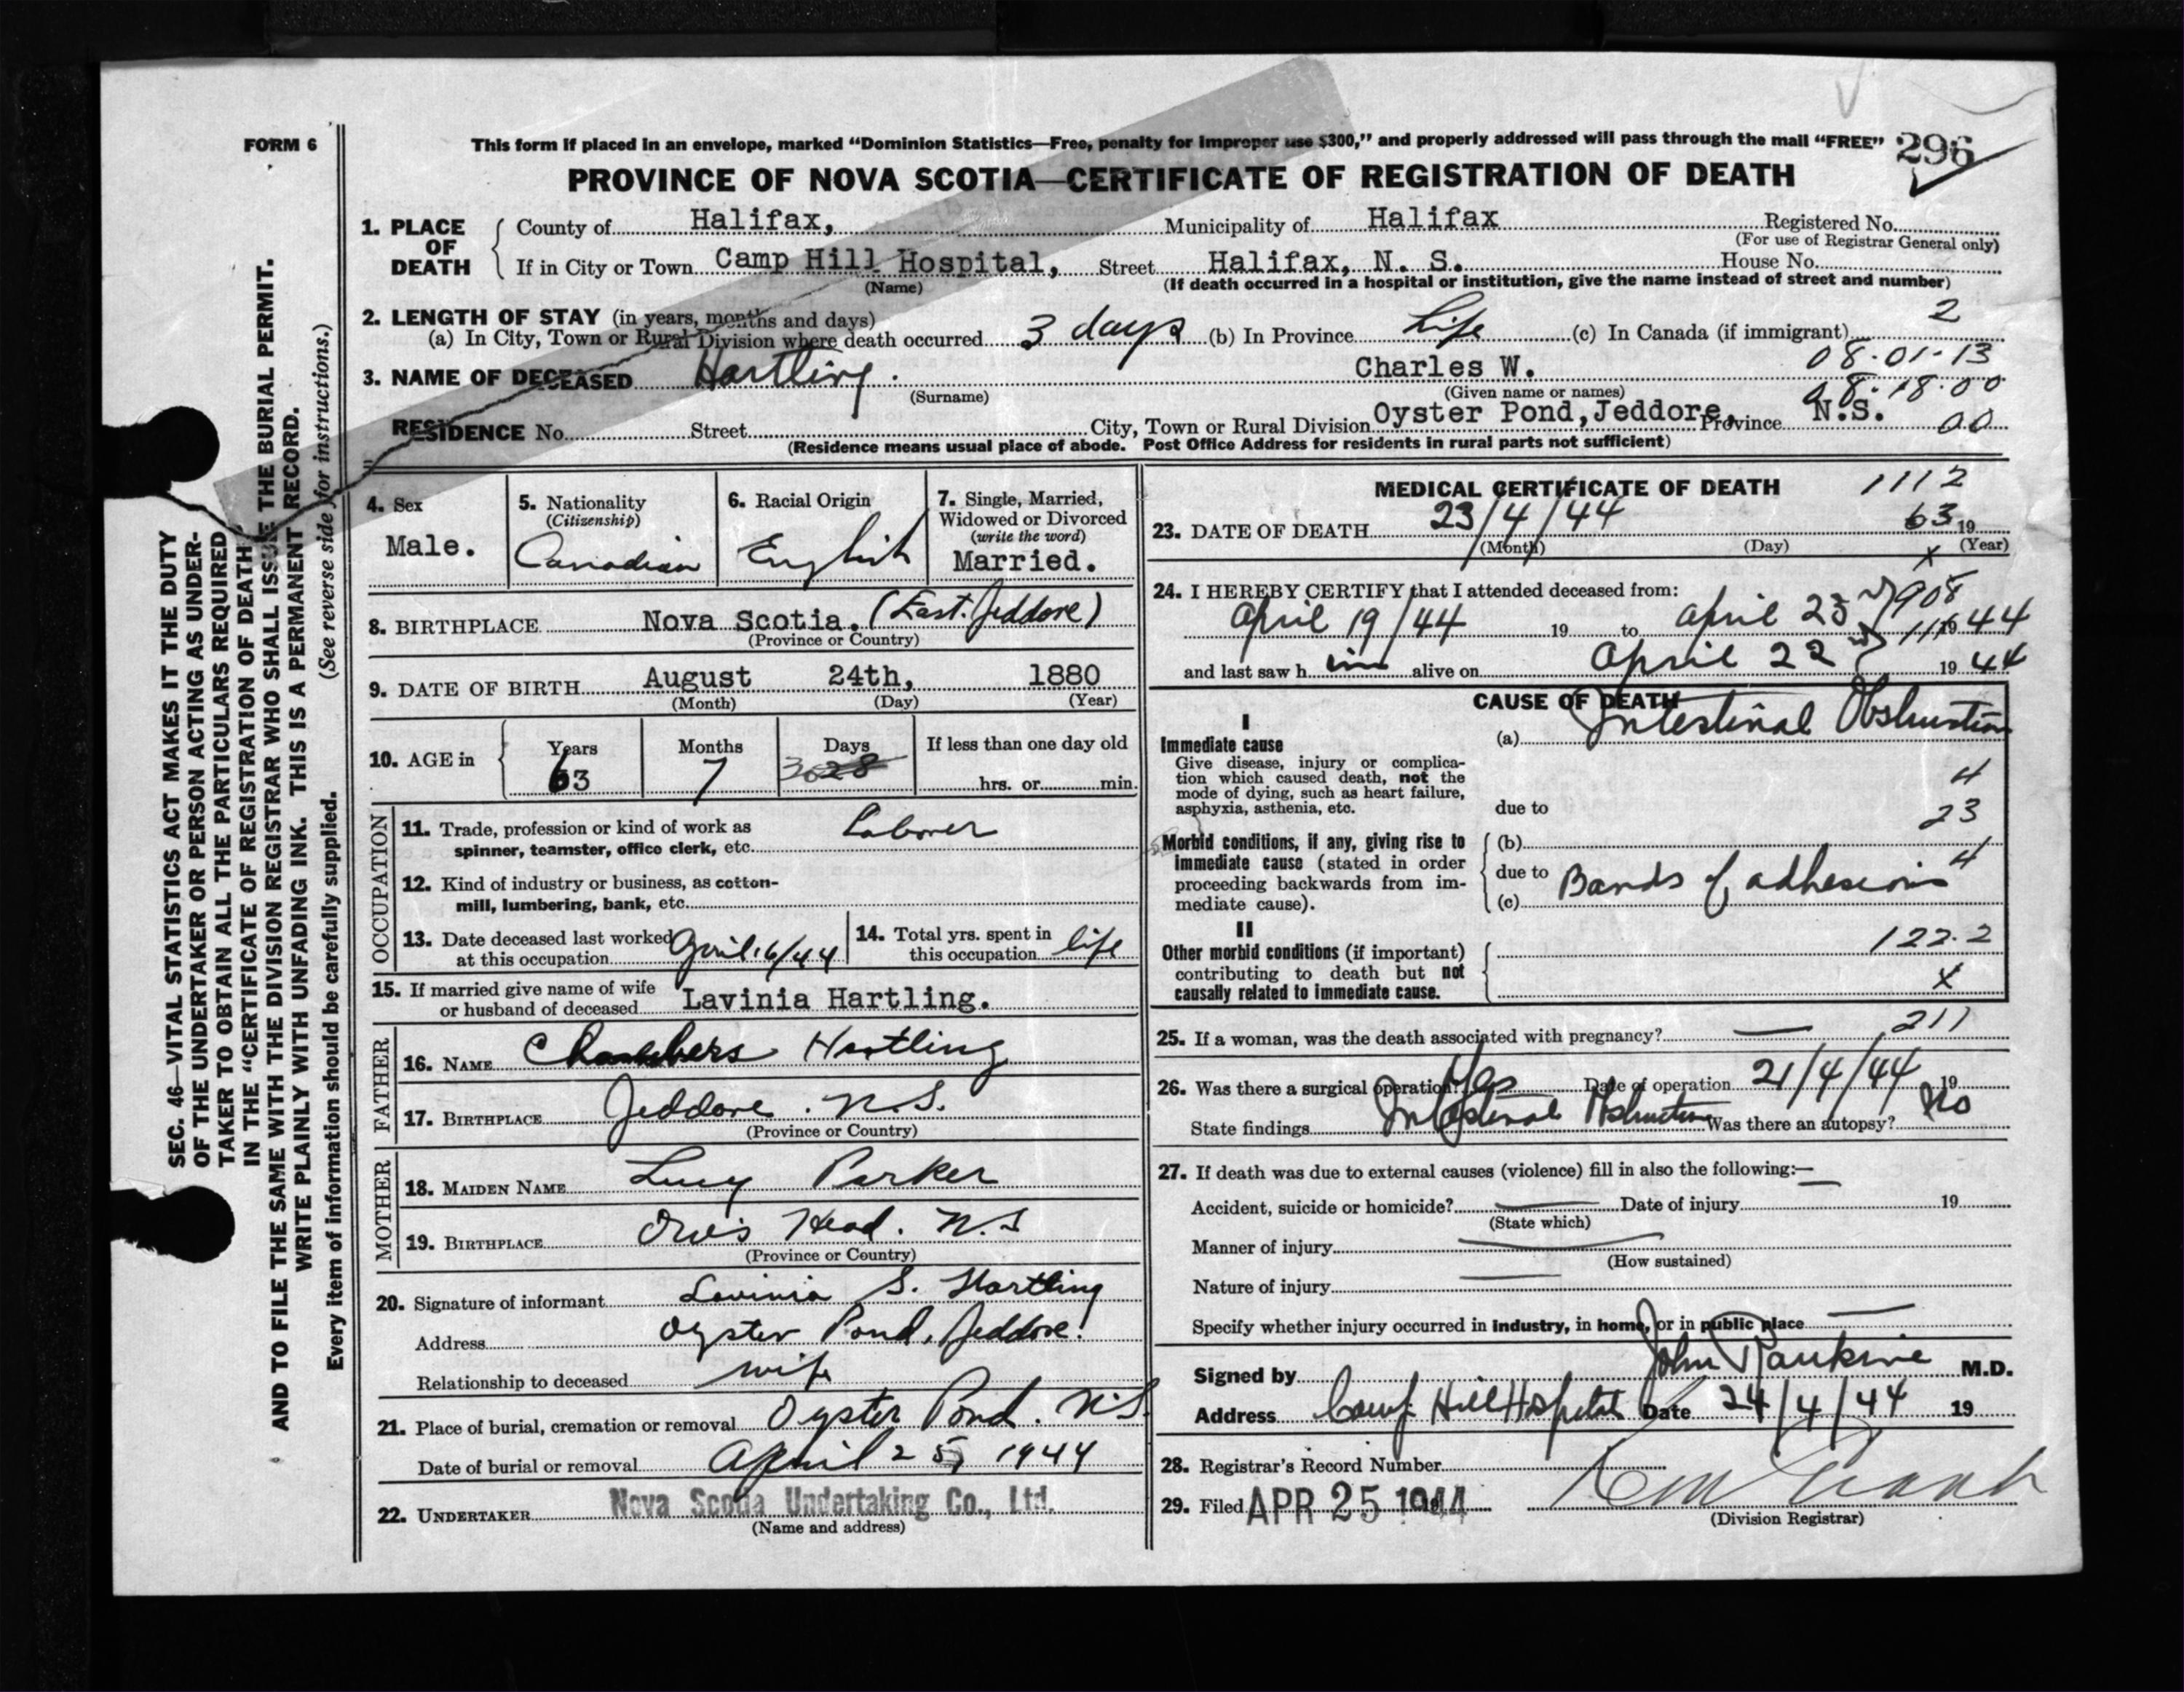 FORM 6
This form if placed in an envelope, marked “Dominion Statistics—Free, penalty for improper use $300,” and properly addressed will pass through the mail “FREE”
296
PROVINCE OF NOVA SCOTIA—CERTIFICATE OF REGISTRATION OF DEATH
1. PLACE OF DEATH
County of Halifax, Municipality of Halifax Registered No.
(For use of Registrar General only)
If in City or Town Camp Hill Hospital, Street Halifax, N. S. House No.
(Name) (If death occurred in a hospital or institution, give the name instead of street and number)
2. LENGTH OF STAY (in years, months and days) 2
(a) In City, Town or Rural Division where death occurred 3 days (b) In Province Life (c) In Canada (if immigrant)
08-01-13
3. NAME OF DECEASED Hartling. Charles W.
(Surname) (Given name or names) 08-18-00
RESIDENCE No. Street City, Town or Rural Division Oyster Pond, Jeddore, Province N.S. 00
(Residence means usual place of abode. Post Office Address for residents in rural parts not sufficient)
SEC. 46—VITAL STATISTICS ACT MAKES IT THE DUTY
OF THE UNDERTAKER OR PERSON ACTING AS UNDER-
TAKER TO OBTAIN ALL THE PARTICULARS REQUIRED
IN THE "CERTIFICATE OF REGISTRATION OF DEATH"
AND TO FILE THE SAME WITH THE DIVISION REGISTRAR WHO SHALL ISSUE THE BURIAL PERMIT.
WRITE PLAINLY WITH UNFADING INK. THIS IS A PERMANENT RECORD.
Every item of information should be carefully supplied. (See reverse side for instructions.)
4. Sex
Male.
5. Nationality
(Citizenship)
Canadian
6. Racial Origin
English
7. Single, Married,
Widowed or Divorced
(write the word)
Married.
8. BIRTHPLACE Nova Scotia. (East. Jeddore)
(Province or Country)
9. DATE OF BIRTH August 24th, 1880
(Month) (Day) (Year)
10. AGE in Years Months Days If less than one day old
63 7 28 hrs. or min.
OCCUPATION
11. Trade, profession or kind of work as Laborer
spinner, teamster, office clerk, etc.
12. Kind of industry or business, as cotton-
mill, lumbering, bank, etc.
13. Date deceased last worked
at this occupation April 16/44
14. Total yrs. spent in
this occupation life
15. If married give name of wife
or husband of deceased Lavinia Hartling.
FATHER
16. NAME Chambers Hartling
17. BIRTHPLACE Jeddore. N.S.
(Province or Country)
MOTHER
18. MAIDEN NAME Lucy Parker
19. BIRTHPLACE Head. N.S
(Province or Country)
20. Signature of informant Lavinia S. Hartling
Address Oyster Pond, Jeddore.
Relationship to deceased wife
21. Place of burial, cremation or removal Oyster Pond. N.S.
Date of burial or removal April 25, 1944
22. UNDERTAKER Nova Scotia Undertaking Co., Ltd.
(Name and address)
MEDICAL CERTIFICATE OF DEATH 1112
23. DATE OF DEATH 23/4/44 63 19
(Month) (Day) (Year)
x
24. I HEREBY CERTIFY that I attended deceased from:
908
April 19/44 19 to April 23 1944
and last saw h im alive on April 22 19 44
CAUSE OF DEATH
I
Immediate cause
Give disease, injury or complica-
tion which caused death, not the
mode of dying, such as heart failure,
asphyxia, asthenia, etc.
(a) Intestinal Obstruction
4
due to
23
Morbid conditions, if any, giving rise to
immediate cause (stated in order
proceeding backwards from im-
mediate cause).
(b)
4
due to
(c) Bands of adhesions
II
Other morbid conditions (if important)
contributing to death but not
causally related to immediate cause.
122.2
x
25. If a woman, was the death associated with pregnancy? — 211
26. Was there a surgical operation? Yes Date of operation 21/4/44 19
State findings Intestinal Obstruction Was there an autopsy? No
27. If death was due to external causes (violence) fill in also the following:—
Accident, suicide or homicide? — Date of injury 19
(State which)
Manner of injury
(How sustained)
Nature of injury
Specify whether injury occurred in industry, in home, or in public place
Signed by John Rankine M.D.
Address Camp Hill Hospital Date 24/4/44 19
28. Registrar's Record Number
29. Filed APR 25 1944
(Division Registrar)